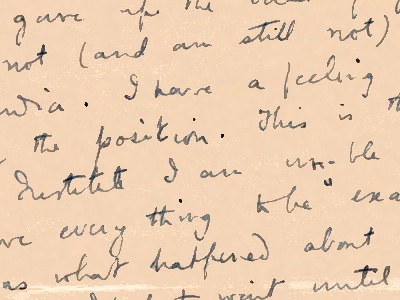 gave up the
not (and am still not)
India. I have a feeling
the position. This is
Institute I am un- ble
ve every thing to be" exa
as what happened about
want until